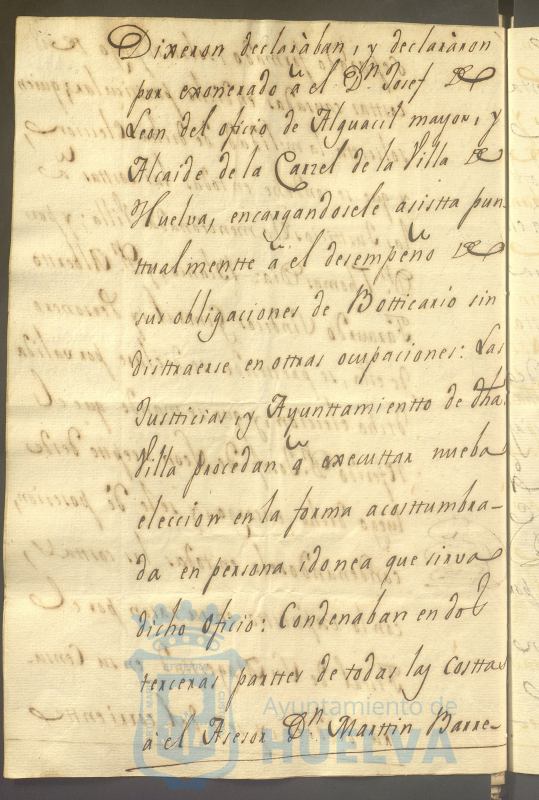 Dixeron declaràban, y declaràron
por exonerado à el Dn. Josef de
Leon del oficio de Alguacil mayor, y
Alcaide de la Carzel de la Villa de
Huelva, encargandosele asistta pun
ttualmentte à el desempeño de
sus obligaciones de Botticario sin
disttraerse en ottras ocupaciones: Las
Justticias, y Ayunttamientto de dha
Villa procedan à executtar nueba
eleccion en la forma acosttumbra-
da en persona idonea que sirva
dicho oficio: Condenaban en dos
terceras parttes de todas las Costtas
à el Asesor Dn. Marttin Barre-
Ayuntamiento de
HUELVA